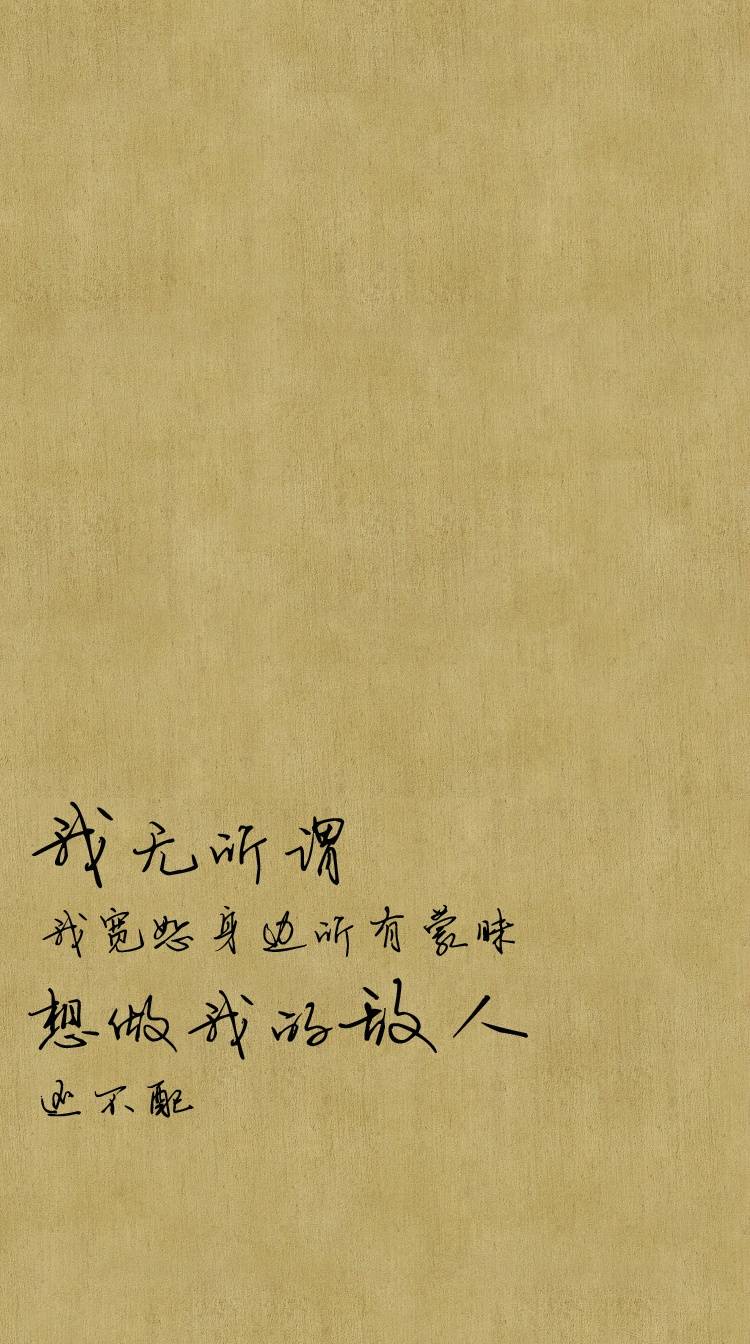 我无所谓
我宽恕身边所有蒙昧
想做我的敌人
还不配